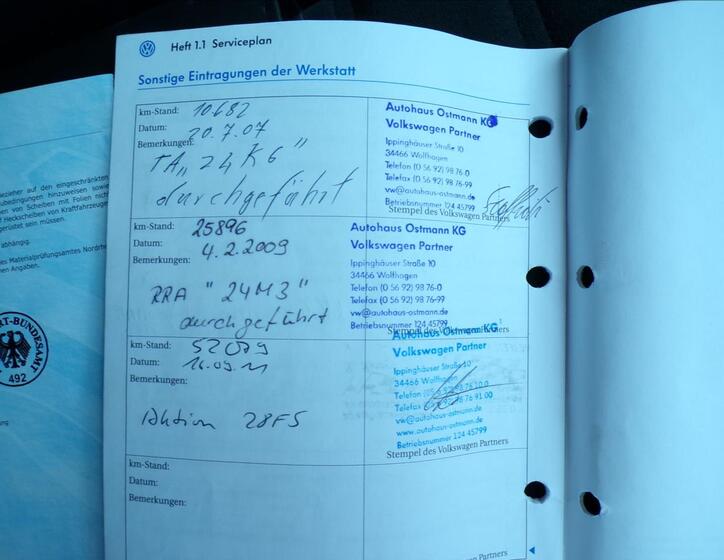 Heft 1.1 Serviceplan
Sonstige Eintragungen der Werkstatt
km-Stand: 10682
Datum: 20.7.07
Bemerkungen:
TA „24K6"
durchgeführt
Autohaus Ostmann KG
Volkswagen Partner
Ippinghäuser Straße 10
34466 Wolfhagen
Telefon (0 56 92) 98 76-0
Telefax (0 56 92) 98 76-99
vw@autohaus-ostmann.de
Betriebsnummer 124 45799
Stempel des Volkswagen Partners
km-Stand: 25896
Datum: 4.2.2009
Bemerkungen:
RRA "24M3"
durchgeführt
Autohaus Ostmann KG
Volkswagen Partner
Ippinghäuser Straße 10
34466 Wolfhagen
Telefon (0 56 92) 98 76-0
Telefax (0 56 92) 98 76-99
vw@autohaus-ostmann.de
Betriebsnummer 124 45799
Stempel des Volkswagen Partners
km-Stand:
Datum:
Bemerkungen:
Aktion 28F5
Autohaus Ostmann KG
Volkswagen Partner
Ippinghäuser Straße 10
34466 Wolfhagen
Telefon (0 56 92) 98 76 10 0
Telefax (0 56 92) 98 76 91 00
vw@autohaus-ostmann.de
www.autohaus-ostmann.de
Betriebsnummer 124 45799
Stempel des Volkswagen Partners
km-Stand:
Datum:
Bemerkungen:
den eingeschränkten
hinzuweisen sowie
von Scheiben mit Folien nicht
Heckscheiben von Kraftfahrzeugen
sein müssen.
abhängig.
Materialprüfungsamtes
Angaben.
BUNDESAMT
492